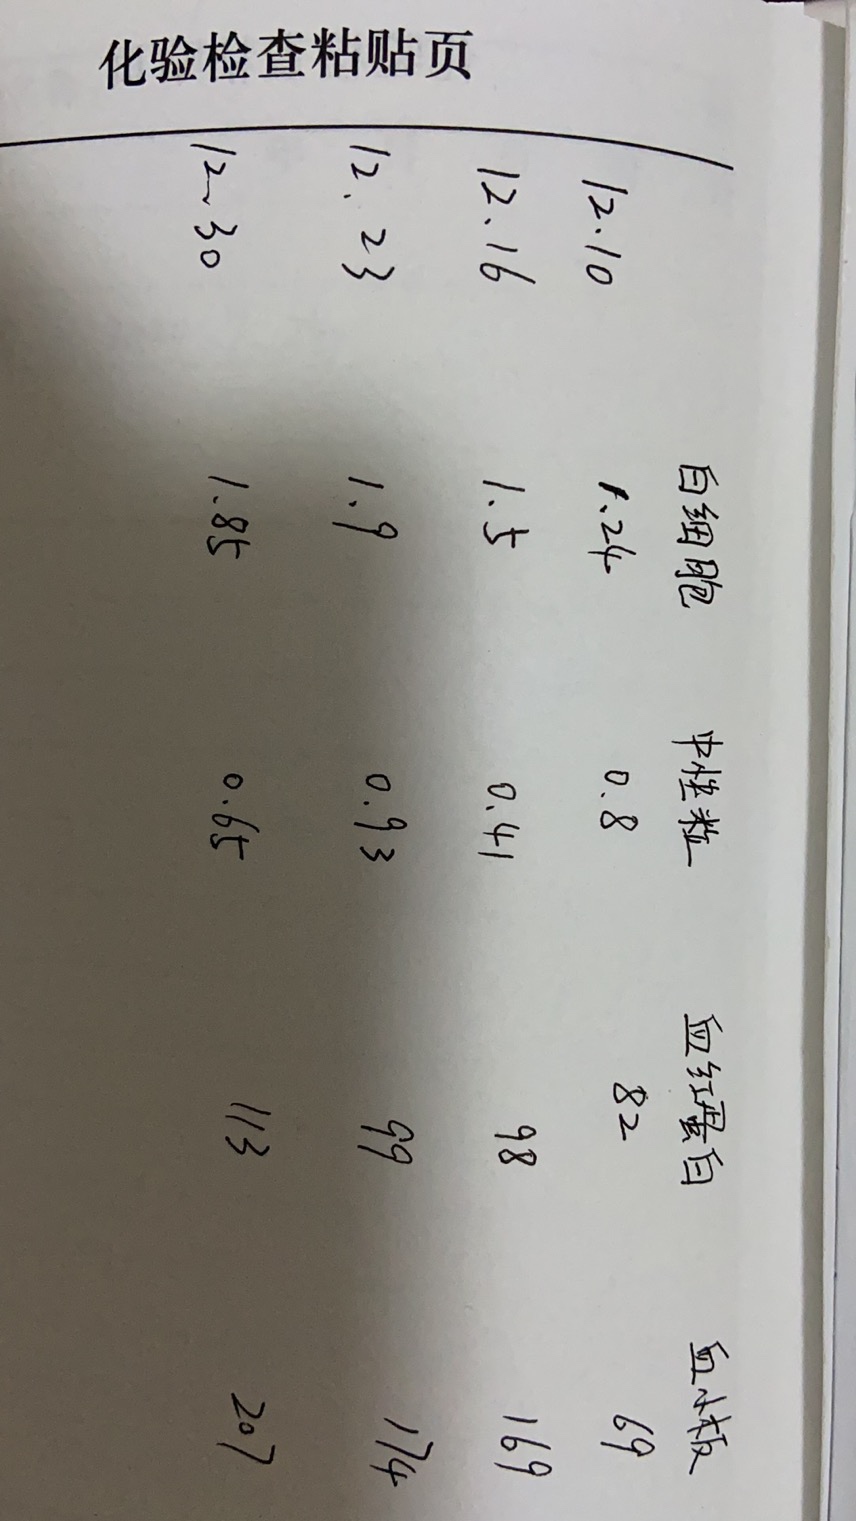 化验检查粘贴页
白细胞 中性粒 血红蛋白 血小板
12.10 1.24 0.8 82 69
12.16 1.5 0.41 98 169
12.23 1.9 0.93 99 174
12.30 1.85 0.65 113 207